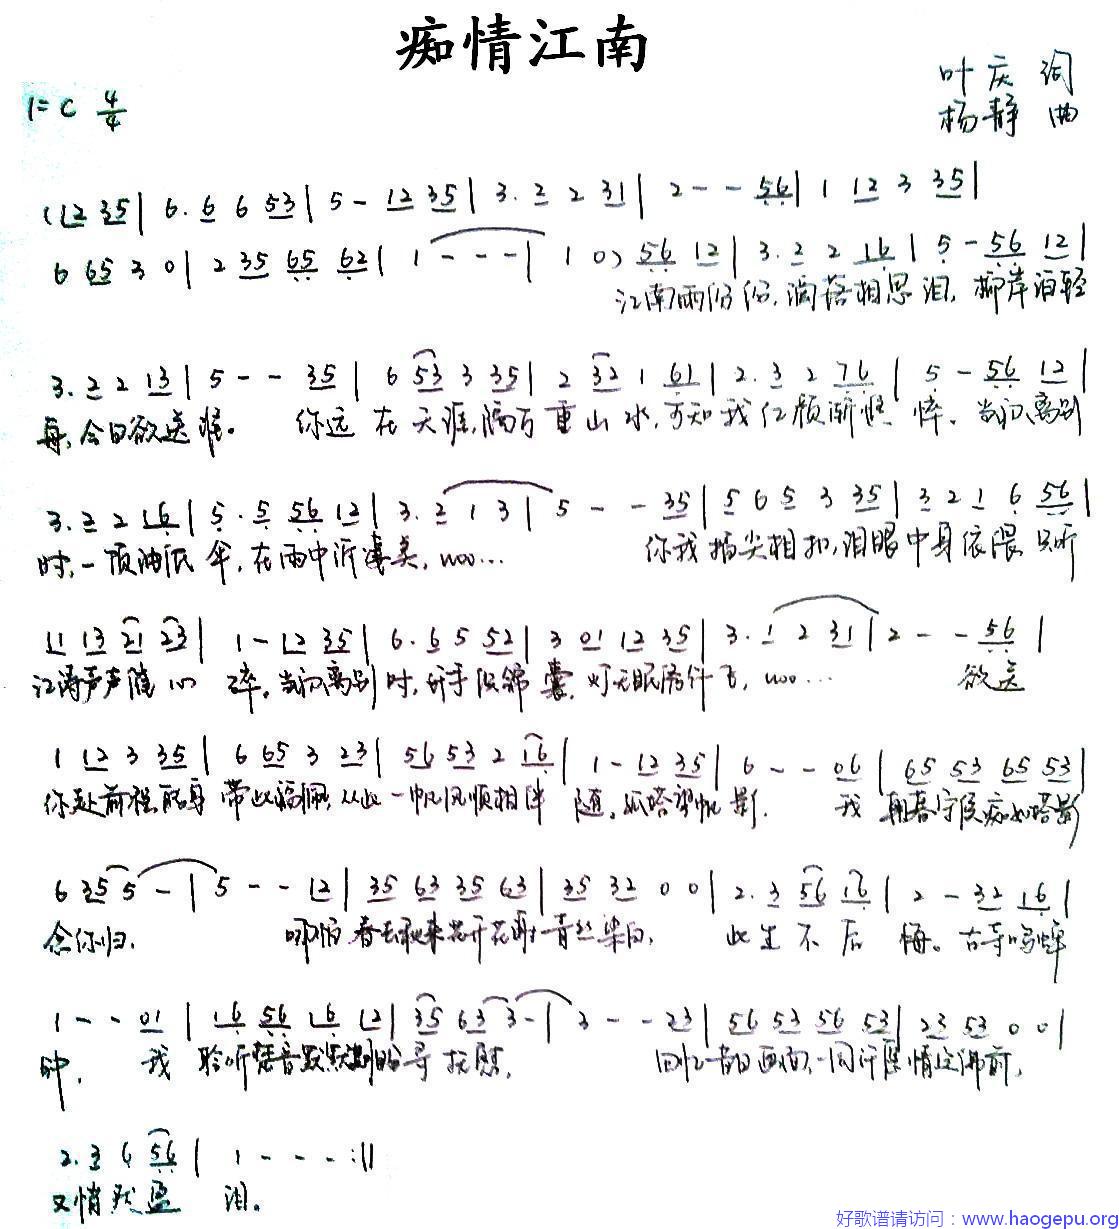 痴情江南
叶庆 词
1=C 4/4
杨静 曲
(12 35| 6. 6 6 53| 5 - 12 35| 3. 2 2 31| 2 - - 56| 1 12 3 35|
6 65 3 0| 2 35 65 62| 1 - - -| 1 0) 56 12| 3. 2 2 16| 5 - 56 12|
江南雨纷纷,滴落相思泪,柳岸泊轻
3. 2 2 13| 5 - - 35| 6 53 3 35| 2 32 1 61| 2. 3 2 76| 5 - 56 12|
每,今日欲送谁。 你远在天涯,隔万重山水,可知我红颜渐憔悴。当初离别
3. 2 2 16| 5. 5 56 12| 3. 2 1 3| 5 - - 35| 5 6 5 3 35| 3 2 1 6 56|
时,一顶油纸伞,在雨中诉凄美,woo... 你我指尖相扣,泪眼中身依偎 只听
11 13 21 23| 1 - 12 35| 6. 6 5 52| 3 01 12 35| 3. 1 2 31| 2 - - 56|
江涛声声随心碎,当初离别时, woo... 欲送
1 12 3 35| 6 65 3 23| 56 53 2 16| 1 - 12 35| 6 - - 06| 65 53 65 53|
你赴前程 带此福佩,从此一帆风顺相伴随,孤塔望帆影. 我朝暮守候痴如塔影
6 35 5 -| 5 - - 12| 35 63 35 63| 35 32 0 0| 2. 3 56 16| 2 - 32 16|
念你归. 哪怕春去秋来花开花谢青丝染白, 此生不后悔。古寺鸣蝉
1 - - 01| 16 56 16 12| 35 63 3 -| 3 - - 23| 56 53 56 53| 23 53 0 0|
钟, 我聆听梵音默默 寻抚慰, 回忆昔日画面,一同许愿情定佛前,
2. 3 6 56| 1 - - - :||
又悄然盈泪。
好歌谱请访问：www.haogepu.org